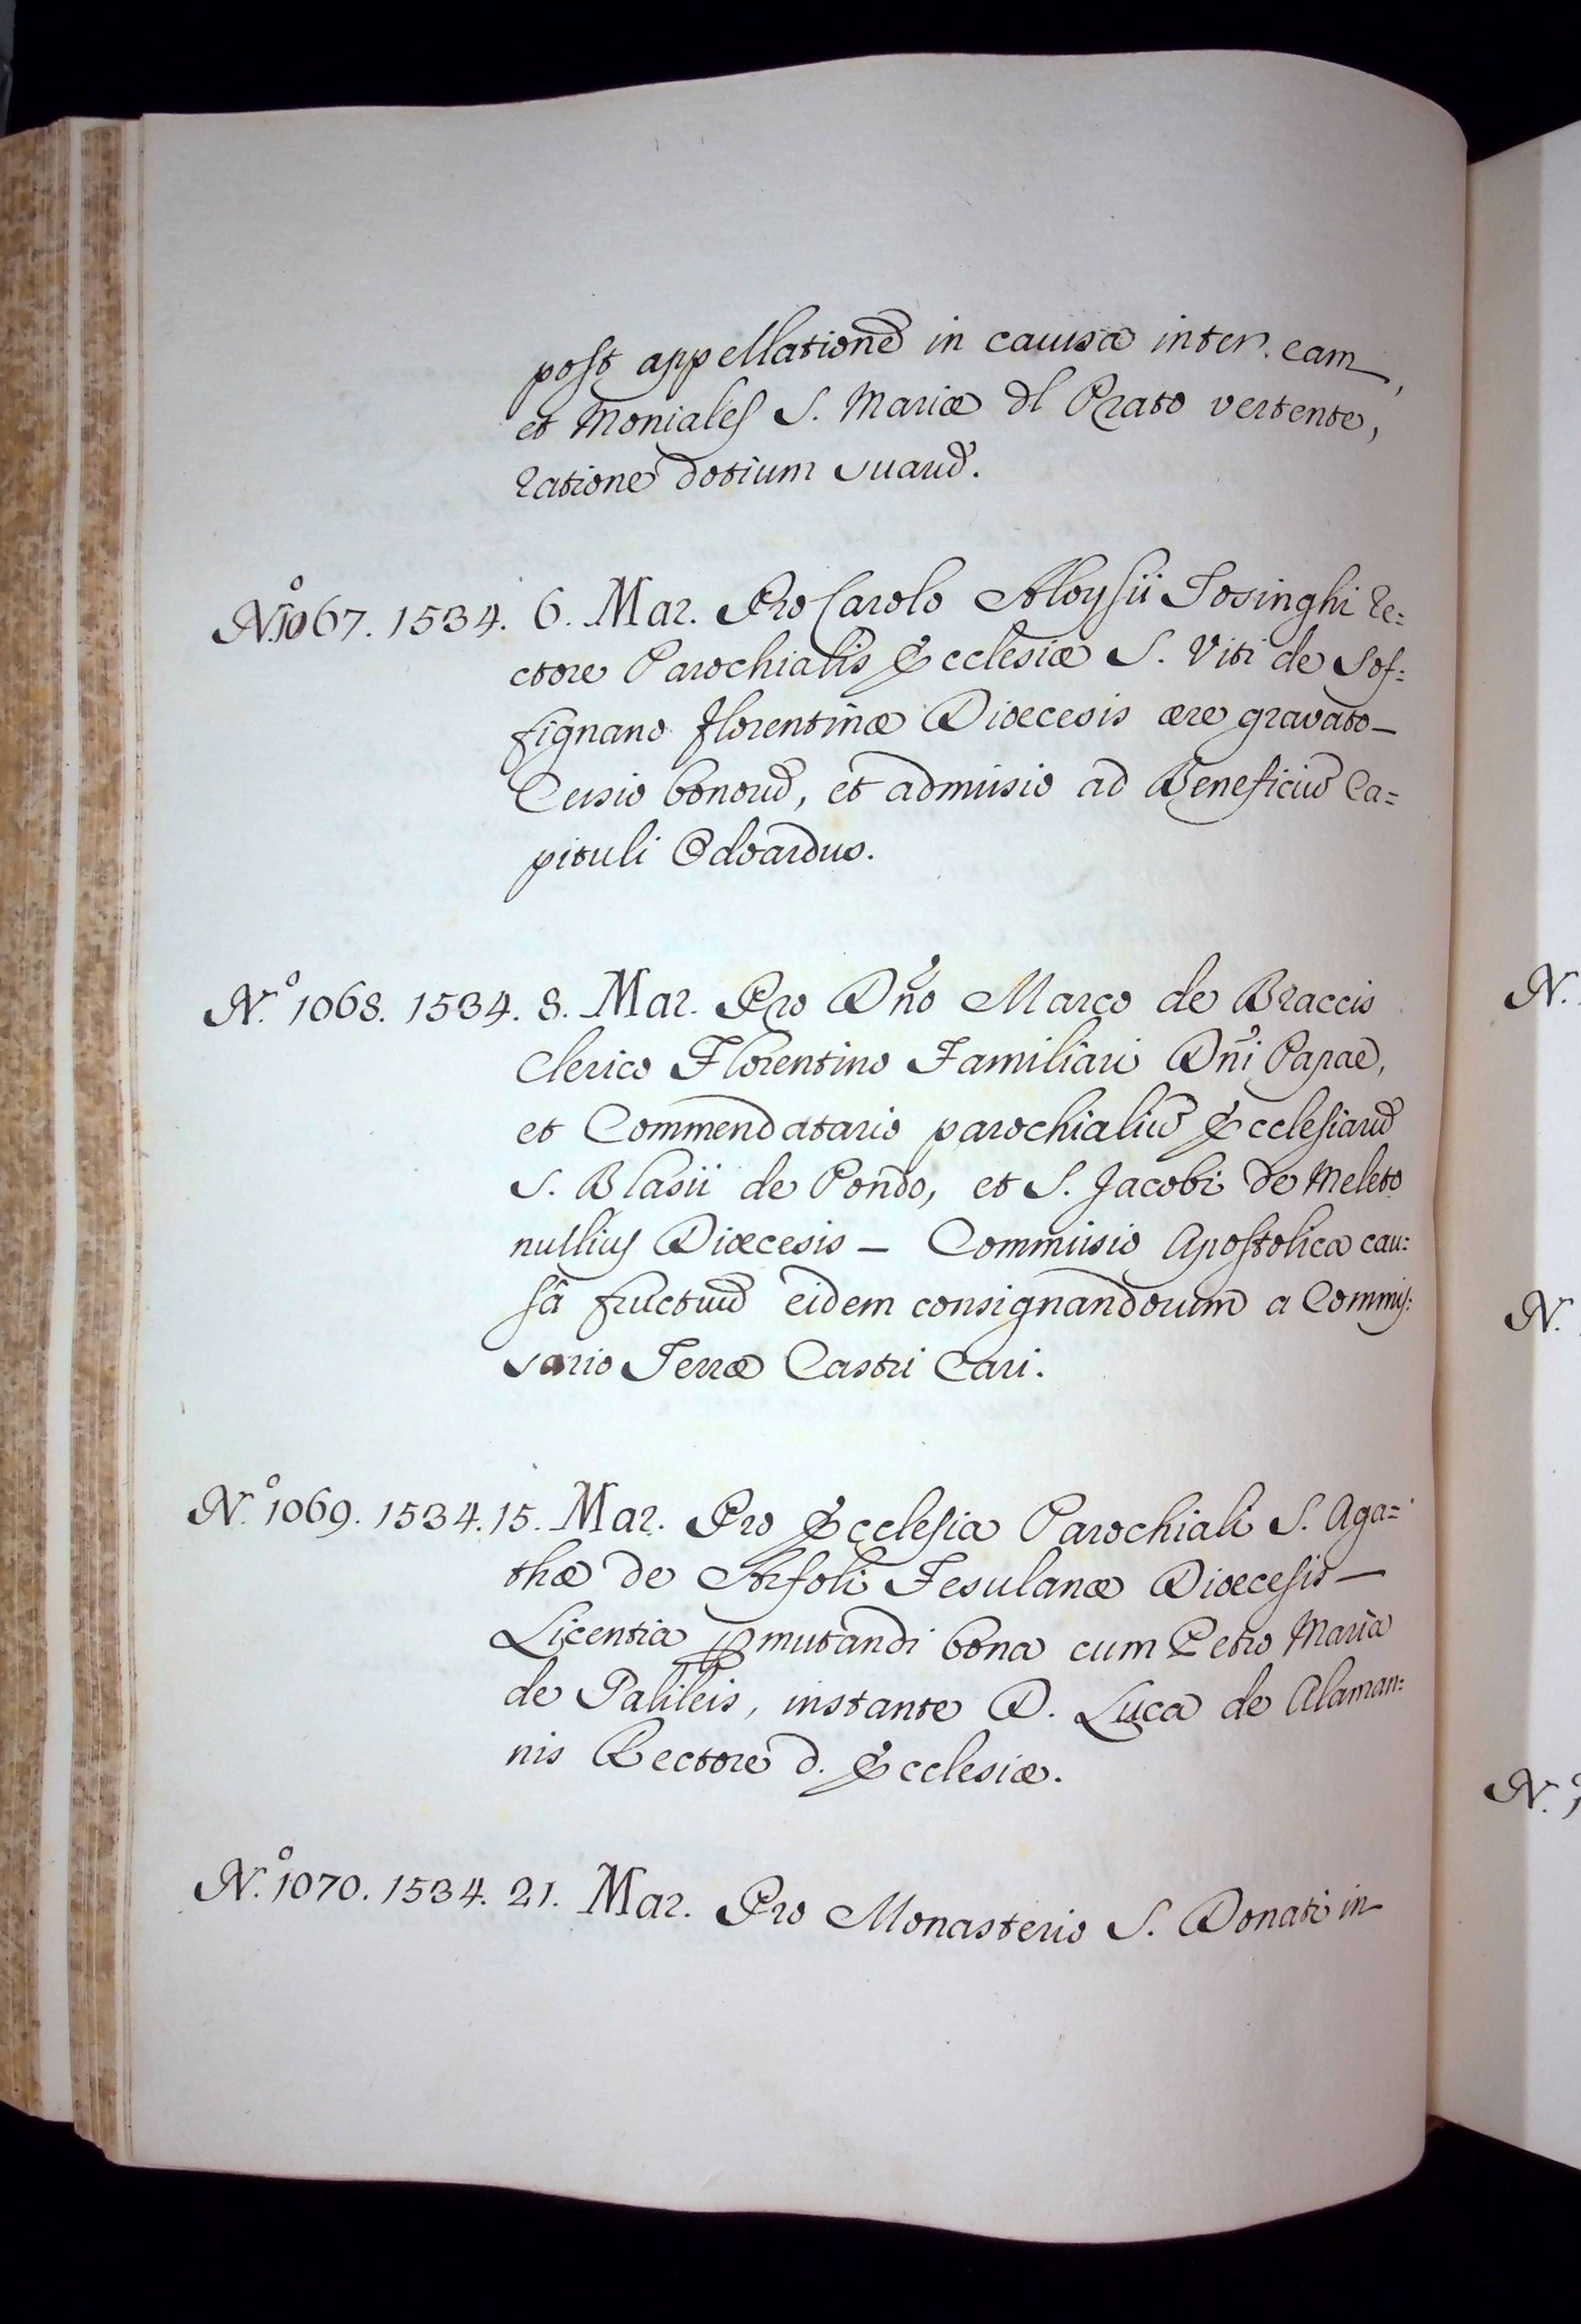 post appellationẽ in causa inter eam,
et Moniales S. Mariæ dl Prato vertente,
ratione dotium suarũ.
N.º 1067. 1534. 6. Mar. Pro Carolo Aloysii Tosinghi Re=
ctore Parochialis Ecclesiæ S. Viti de Sof=
fignano Florentinæ Diœcesis ære gravato_
Cessio bonorũ, et admissio ad Beneficiũ Ca=
pituli Odoardus.
N.º 1068. 1534. 8. Mar. Pro Dño Marco de Braccis
Clerico Florentino Familiari Dñi Papae,
et Commendatario parochialiũ Ecclesiarũ
S. Blasii de Pondo, et S. Jacobi de Meleto
nullius Diœcesis _ Commissio Apostolica cau=
sâ fructuũ eidem consignandorum a Commis=
sario Terræ Castri Cari.
N.º 1069. 1534. 15. Mar. Pro Ecclesia Parochiali S. Aga=
thæ de Arfoli Fesulanæ Diœcesis _
Licentia ꝑmutandi bona cum Petro Maria
de Palileis, instante D. Luca de Alaman=
nis Rectore d. Ecclesiæ.
N.º 1070. 1534. 21. Mar. Pro Monasterio S. Donati in
N.
N.
N.